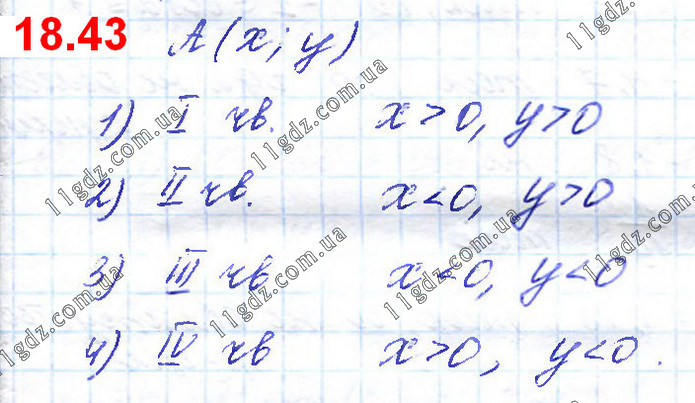 18.43 A(x; y)
1) I чв. x>0, y>0
2) II чв. x<0, y>0
3) III чв x<0, y<0
4) IV чв x>0, y<0.
11gdz.com.ua
11gdz.com.ua
11gdz.com.ua
11gdz.com.ua
11gdz.com.ua
11gdz.com.ua
11gdz.com.ua
11gdz.com.ua